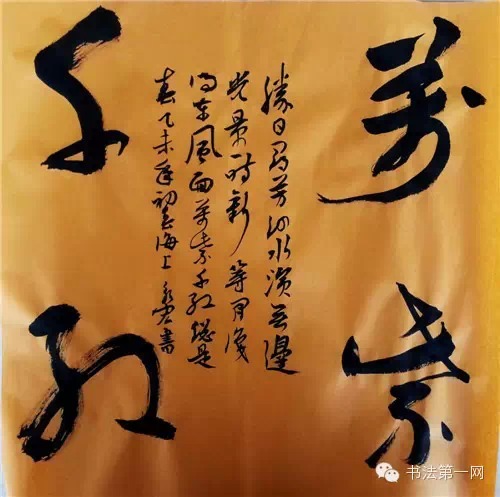 萬紫
勝日尋芳泗水濱無邊
光景一時新等閒識
得東風面萬紫千紅總是
春乙未年初海上書
千紅
书法第一网